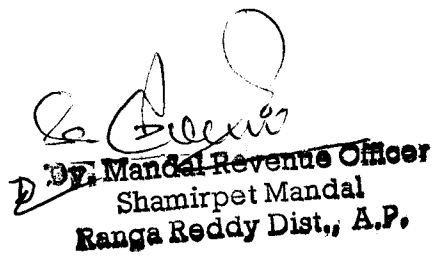 Dy. Mandal Revenue Officer
Shamirpet Mandal
Ranga Reddy Dist., A.P.